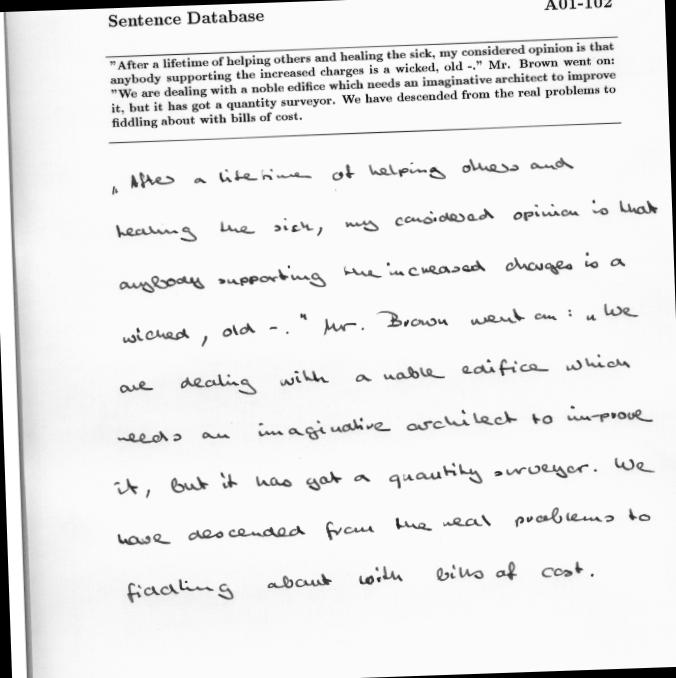 Sentence Database
A01-102
"After a lifetime of helping others and healing the sick, my considered opinion is that
anybody supporting the increased charges is a wicked, old -." Mr. Brown went on:
"We are dealing with a noble edifice which needs an imaginative architect to improve
it, but it has got a quantity surveyor. We have descended from the real problems to
fiddling about with bills of cost.
„After a lifetime of helping others and
healing the sick, my considered opinion is that
anybody supporting the increased charges is a
wicked, old -." Mr. Brown went on: „We
are dealing with a noble edifice which
needs an imaginative architect to improve
it, but it has got a quantity surveyor. We
have descended from the real problems to
fiddling about with bills of cost.